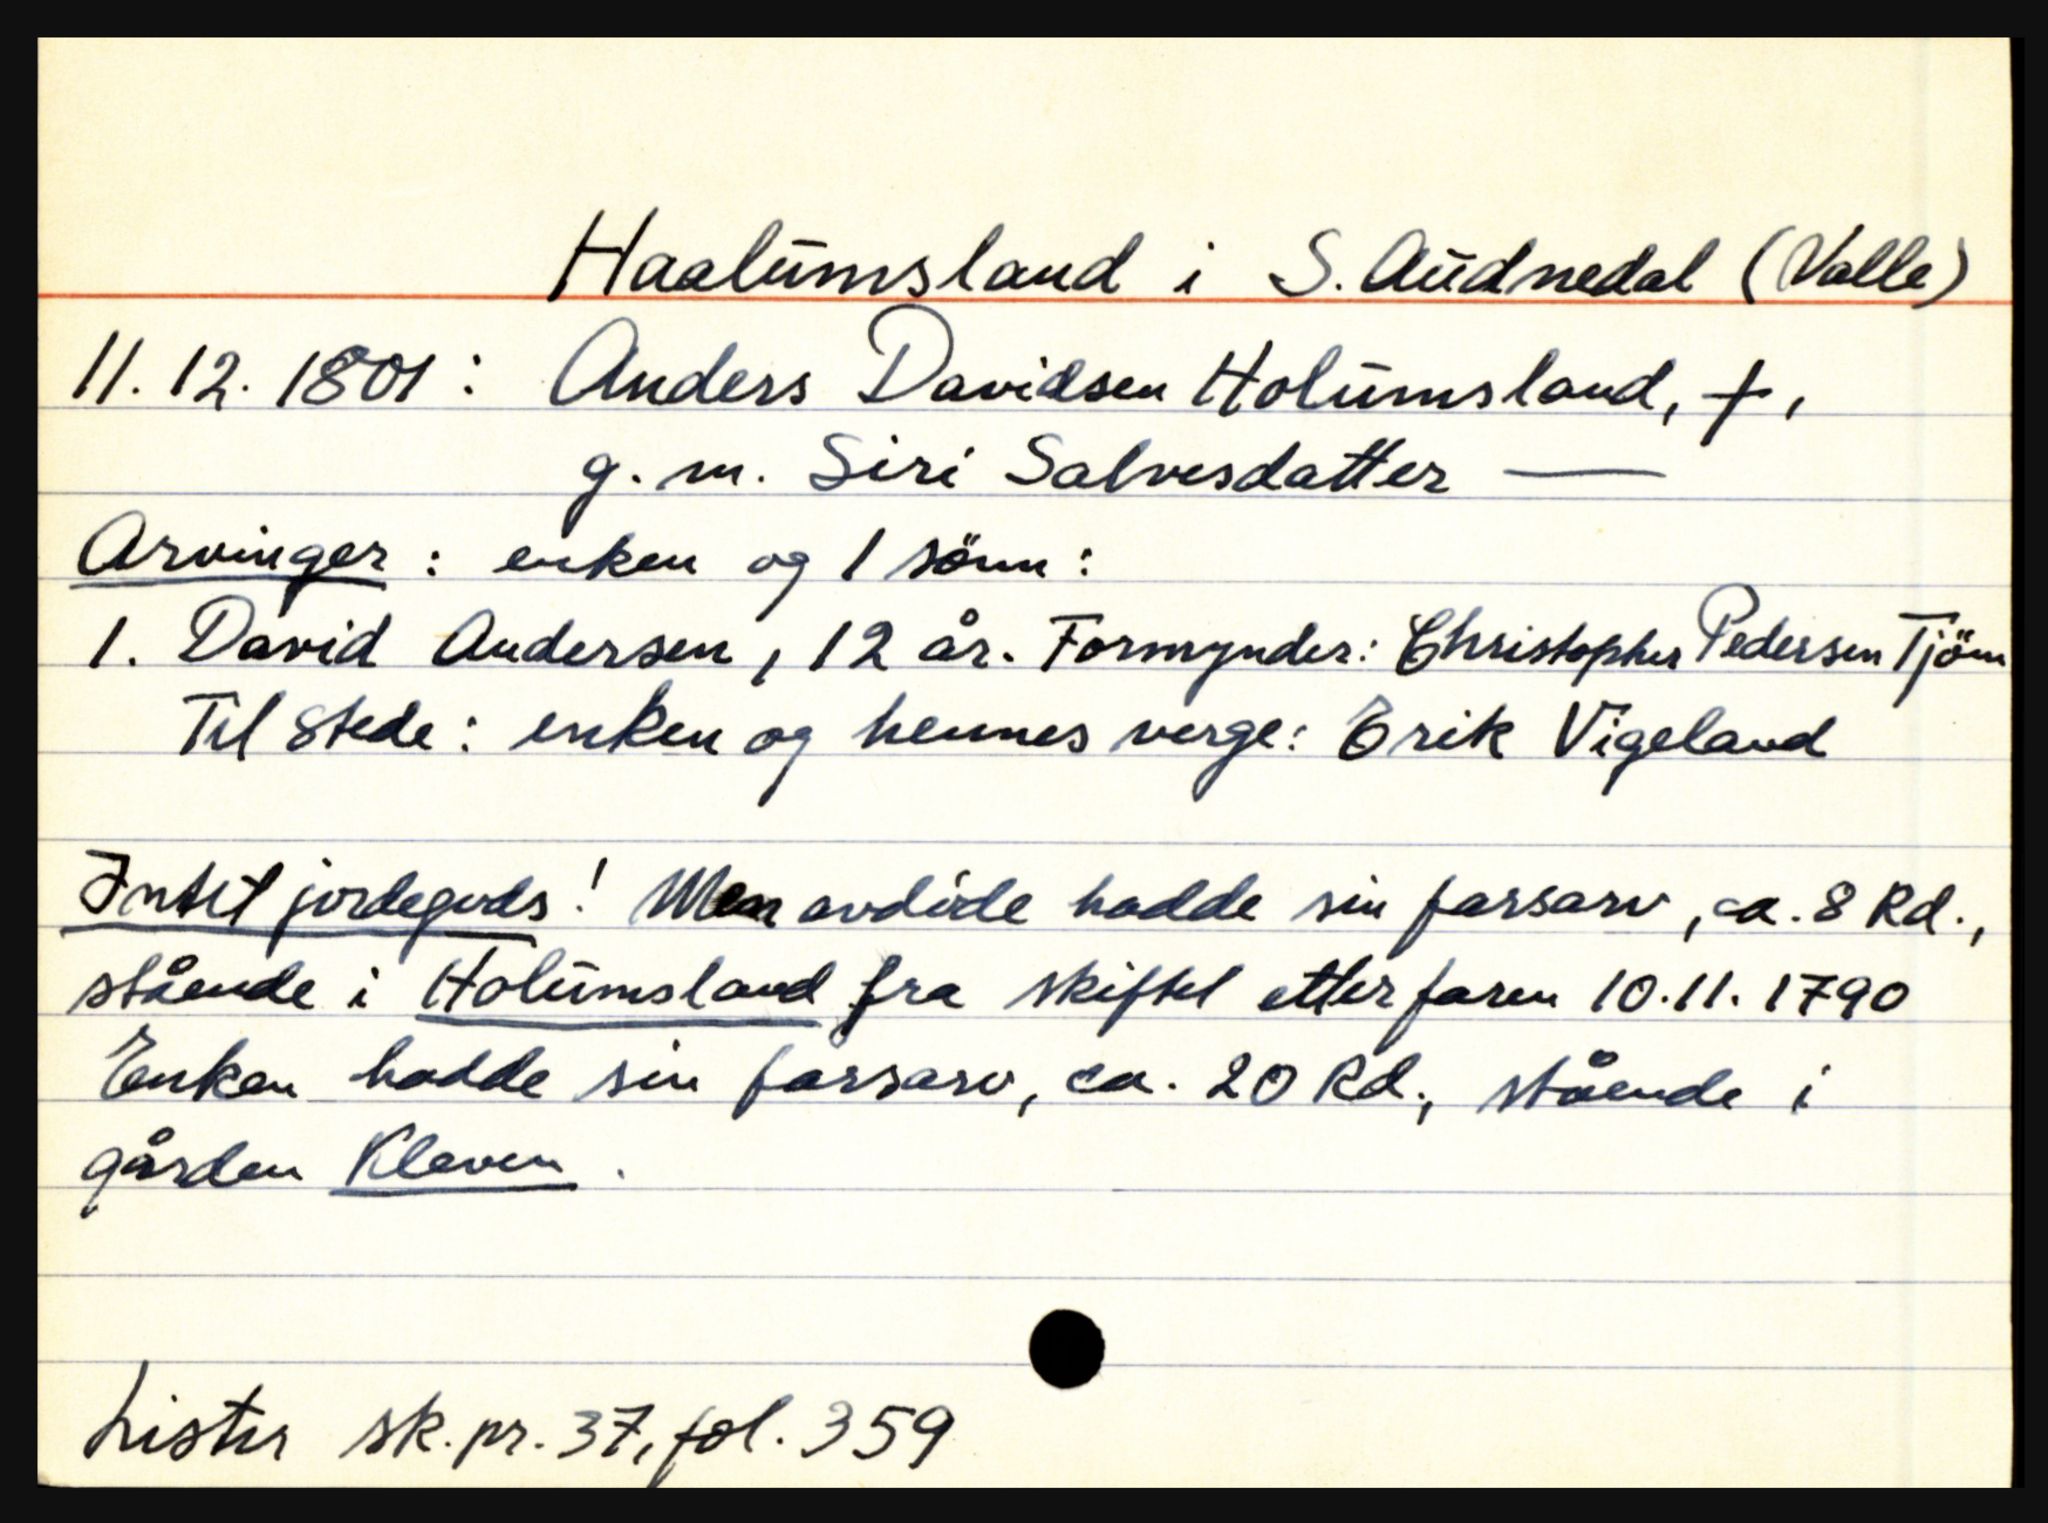 Haalumsland i S. Audnedal (Valle)
11. 12. 1801: Anders Davidsen Holumsland, +,
g. m. Siri Salvesdatter —
Arvinger: enken og 1 sönn:
1. David Andersen, 12 år. Formynder: Christopher Pedersen Tjöm
Til stede: enken og hennes verge: Erik Vigeland
Intet jordegods! Men avdöde hadde sin farsarv, ca. 8 Rd.,
stående i Holumsland fra skiftet etter faren 10.11. 1790
Enken hadde sin farsarv, ca. 20 Rd., stående i
gården Kleven.
Lister sk. pr. 37, fol. 359